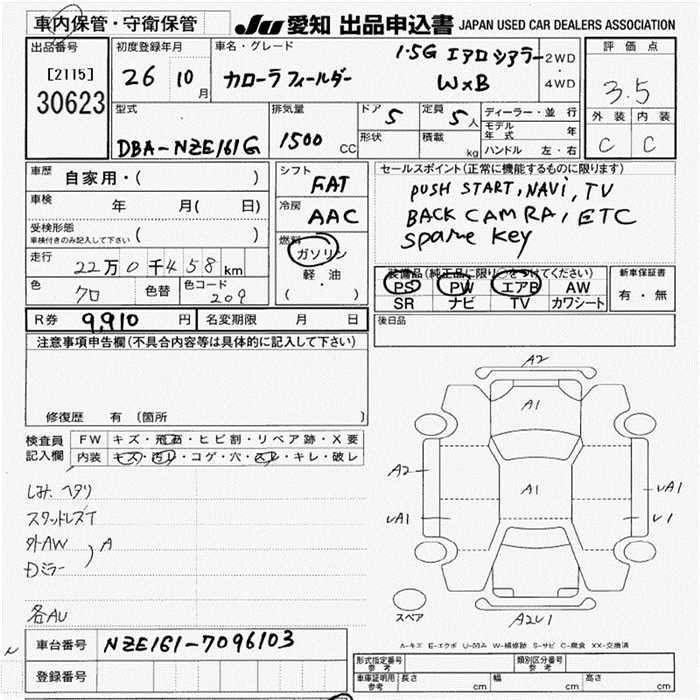 車内保管・守衛保管
JU 愛知 出品申込書 JAPAN USED CAR DEALERS ASSOCIATION
出品番号 初度登録年月 車名・グレード 評価点
[2115] 26 10月 カローラフィールダー 1.5G エアロツアラー WxB 2WD・4WD 3.5
30623
外装 内装
C C
型式 排気量 ドア 5 定員 5人 ディーラー・並行
DBA-NZE161G 1500 CC 形状 積載 kg モデル年式 年
ハンドル 左・右
車歴 自家用・( ) シフト FAT セールスポイント(正常に機能するものに限ります)
車検 年 月( 日) 冷房 AAC PUSH START, NAVi, TV
受検形態 ( ) BACK CAMRA, ETC
車検付きのみ記入して下さい 燃料 ガソリン spare key
走行 22万0千458km 軽・油
色 クロ 色替 色コード 209 ( )
装備品(純正品に限り○をつけてください) 新車保証書
PS PW エアB AW 有・無
SR ナビ TV カワシート
R券 9,910円 名変期限 月 日 後日品
注意事項申告欄(不具合内容等は具体的に記入して下さい)
修復歴 有 (箇所 )
検査員記入欄 FW キズ・飛石・ヒビ割・リペア跡・X要
内装 キズ・汚レ・コゲ・穴・スレ・キレ・破レ
しみ、ヘタリ
スタッドレスT
外AW
Dミラー ) A
各AU
A2
A1
A2 A1 uA1
uA1 u1
スペア A2u1
A-キズ E-エクボ U-凹み W-補修跡 S-サビ C-腐食 XX-交換済
車台番号 NZE161-7096103
登録番号
形式指定番号 参考 類別区分番号 参考
車庫証明用 参考 長さ cm 幅 cm 高さ cm